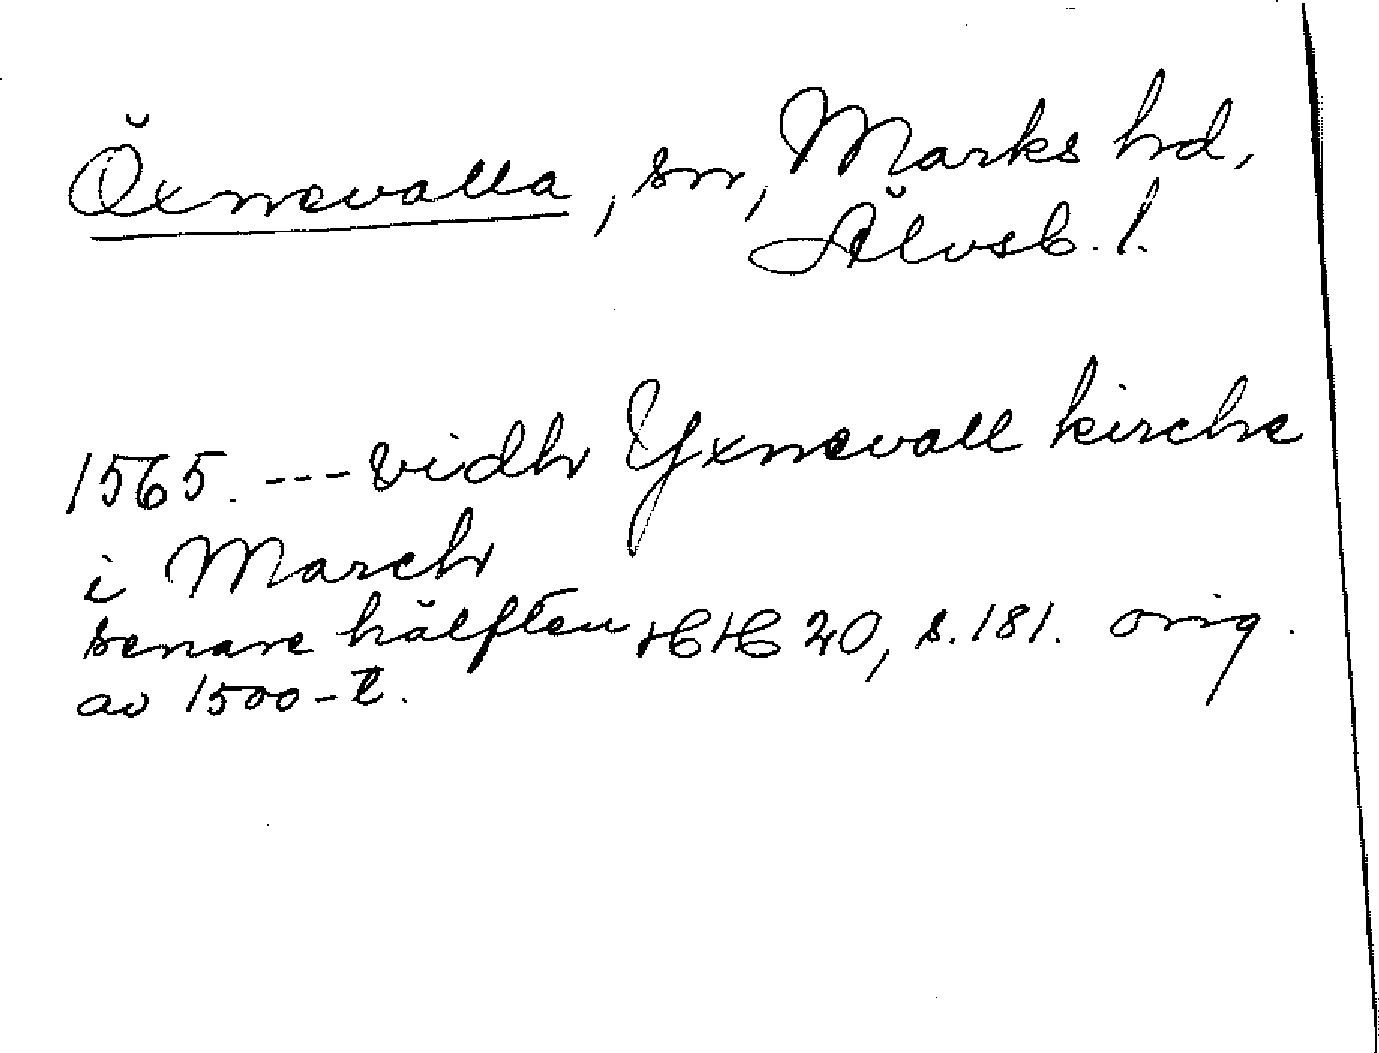 Öxnevalla, sn, Marks hd,
Älvsb. l.
1565. --- vidh Yxnevall kirche
i March
senare hälften HH 20, s. 181. orig.
av 1500-t.